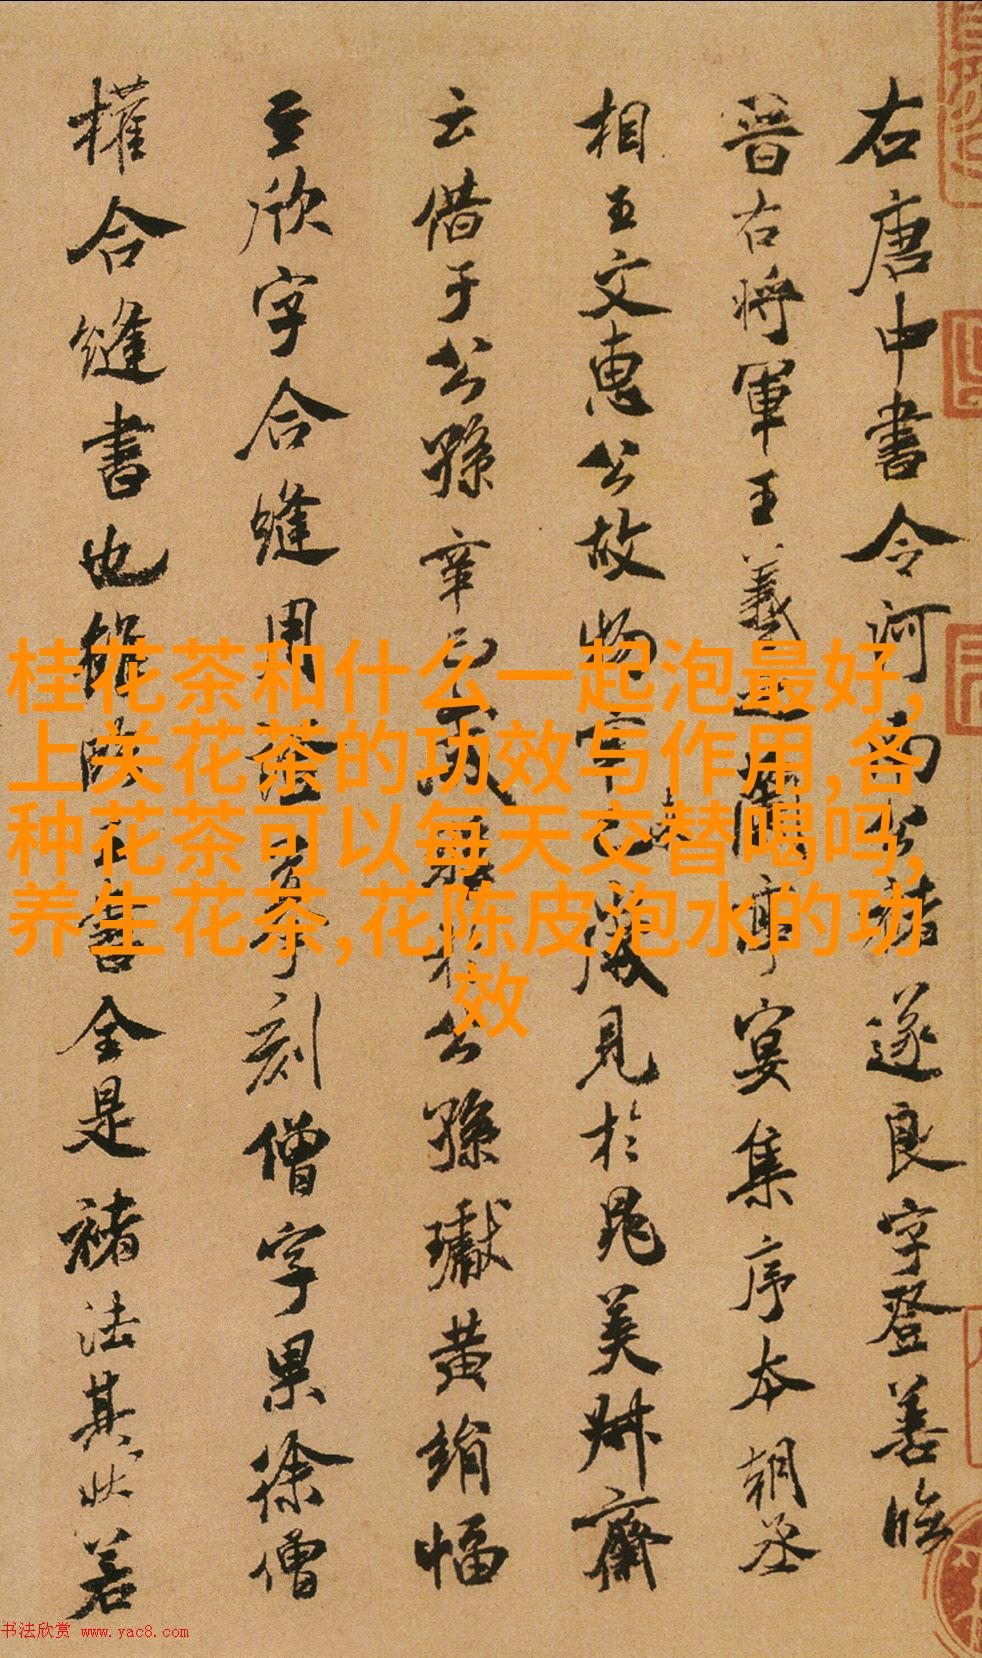 右唐中書令河南公褚遂良字登善臨
晉右將軍王羲之蘭亭宴集序本朝丞
相王文惠公故物 歲見於晁美叔齋
云借于公孫 公孫瓛黃絹幅
至欣字合縫用 刻僧字果徐僧
權合縫書也雖臨王書全是褚法其狀若
桂花茶和什么一起泡最好,
上关花茶的功效与作用,各
种花茶可以每天交替喝吗,
养生花茶,花陈皮泡水的功
效
书法欣赏 www.yac8.com